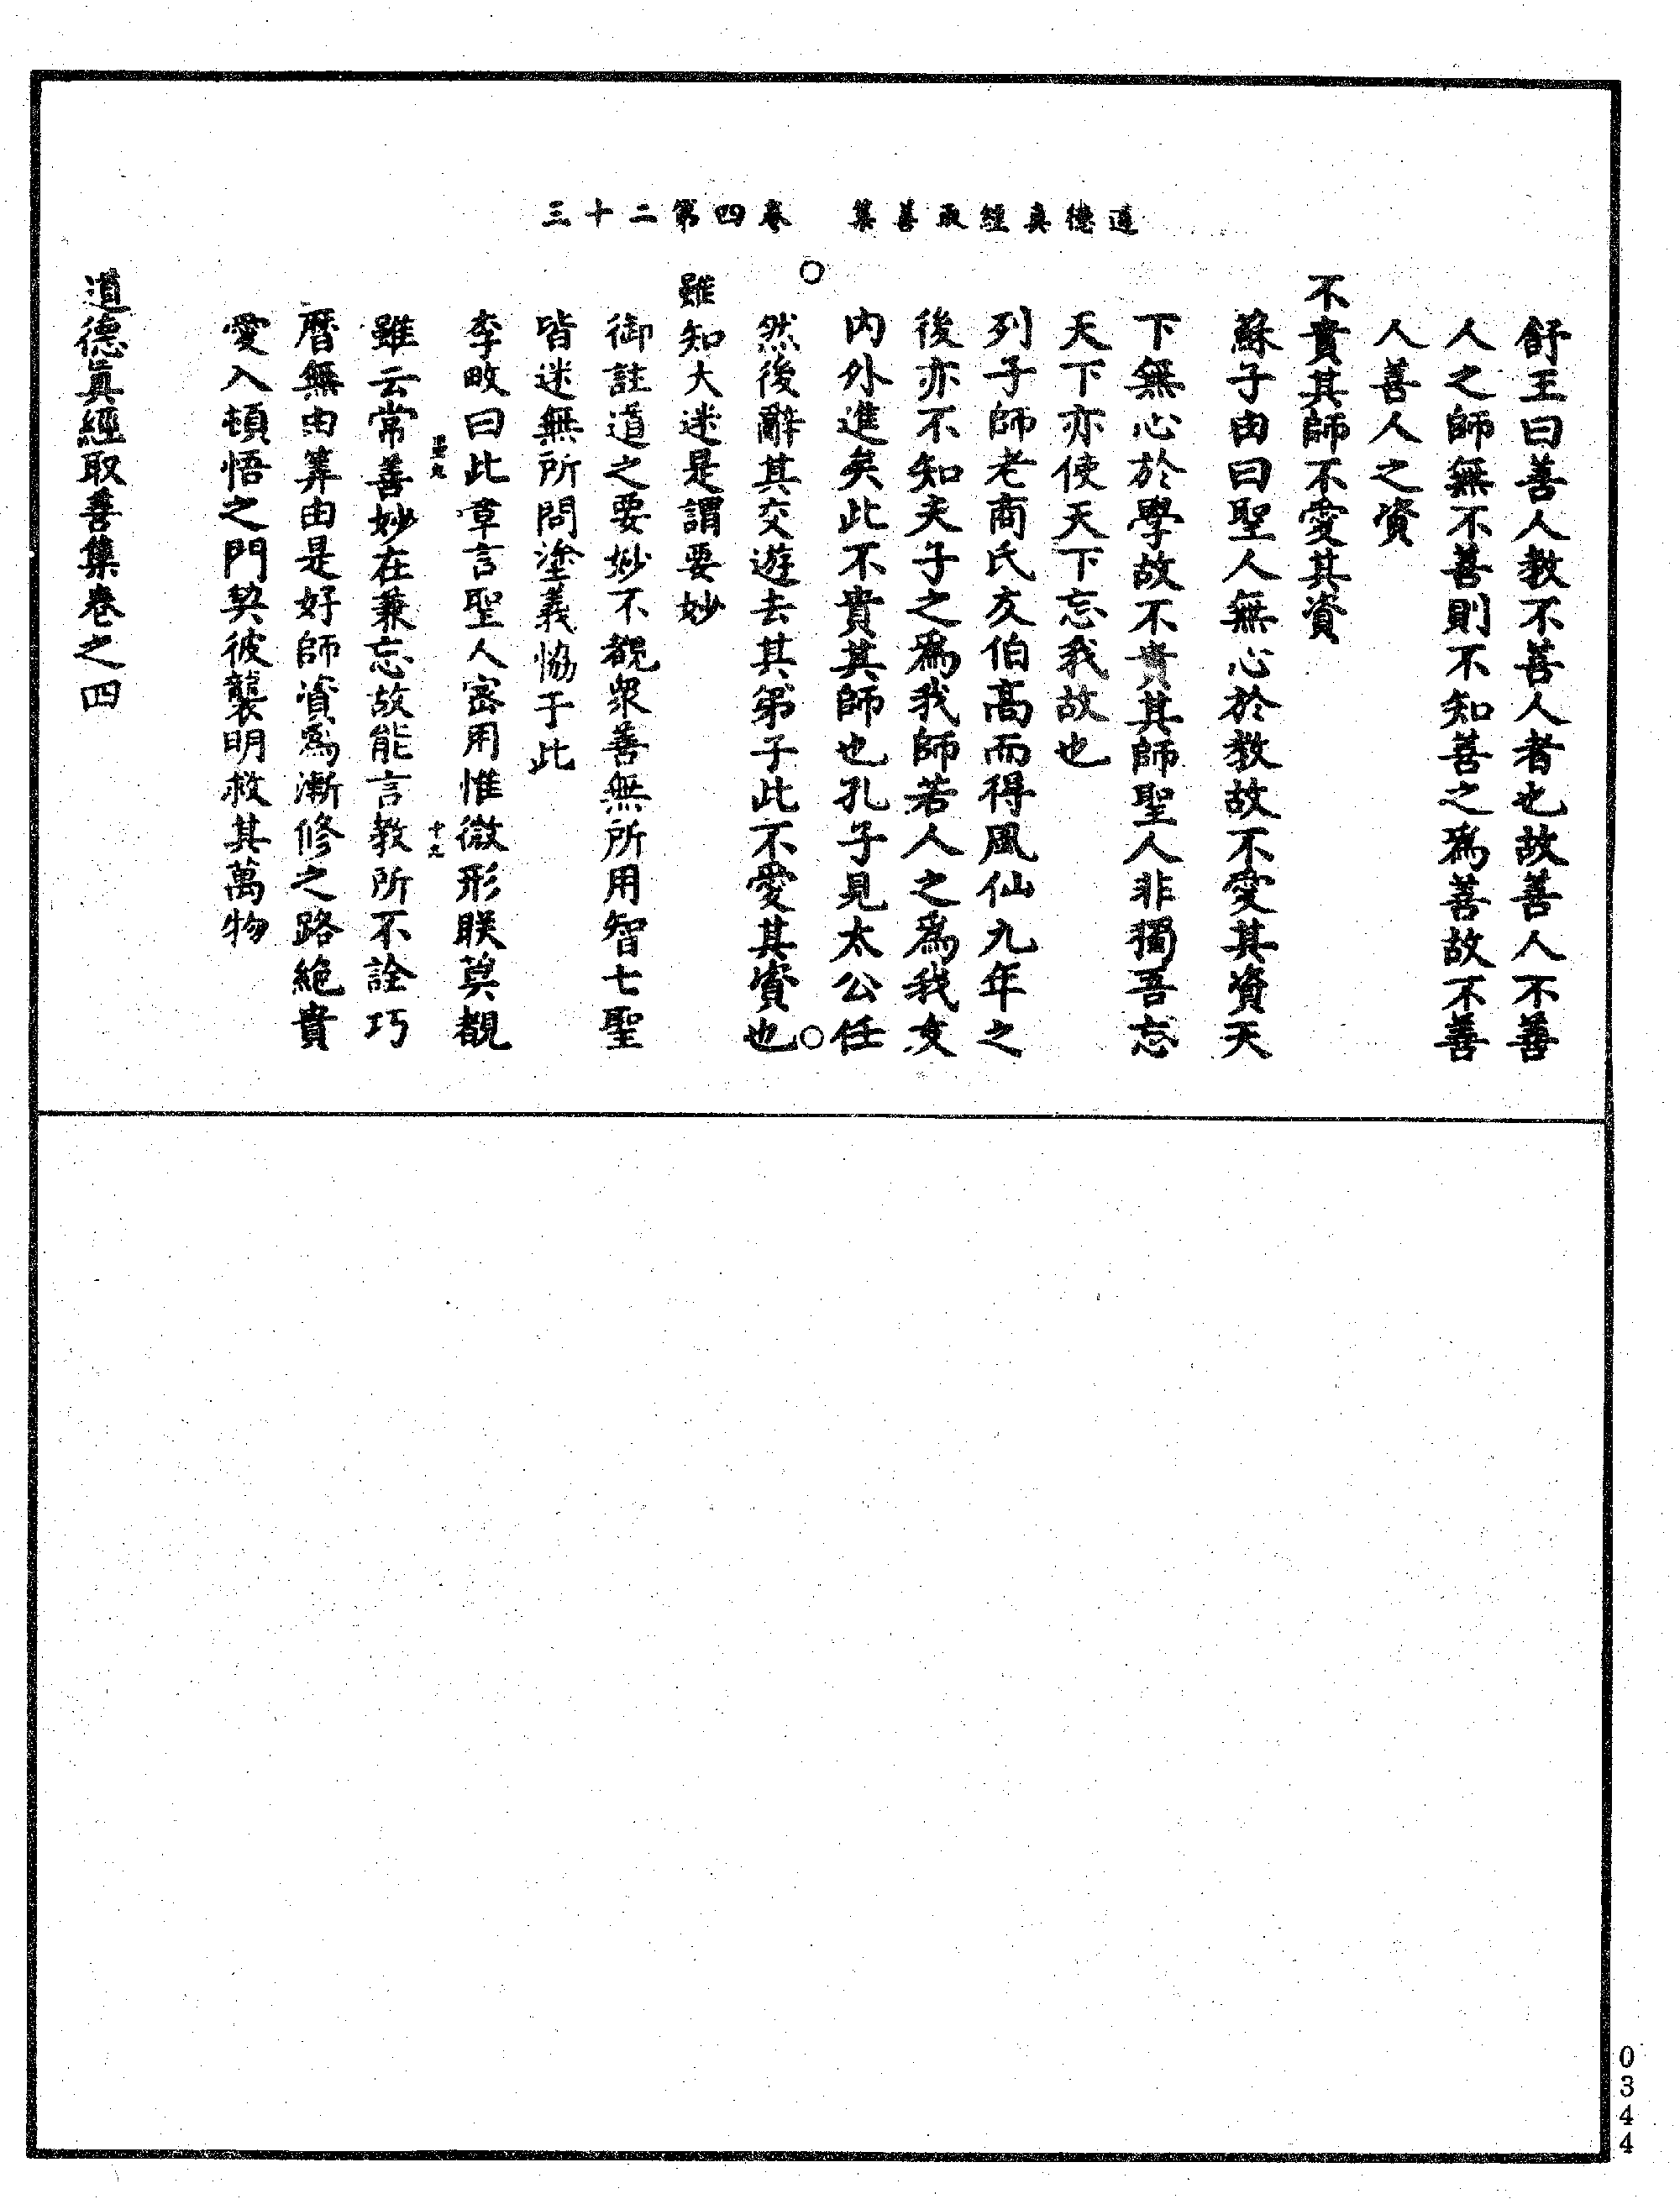 道德真經取善集　卷四第二十三
舒王曰善人教不善人者也故善人不善
人之師無不善則不知善之爲善故不善
人善人之資
不貴其師不愛其資
蘇子由曰聖人無心於教故不愛其資天
下無心於學故不貴其師聖人非獨吾忘
天下亦使天下忘我故也
列子師老商氏友伯高而得風仙九年之
後亦不知夫子之爲我師若人之爲我友
内外進矣此不貴其師也孔子見太公任
然後辭其交遊去其弟子此不愛其資也
雖知大迷是謂要妙
御註道之要妙不覩衆善無所用智七聖
皆迷無所問塗義恊于此
李畋曰此章言聖人密用惟微形眹莫覩
十九
雖云常善妙在兼忘故能言教所不詮巧
曆無由筭由是好師資爲漸修之路絶貴
愛入頓悟之門契彼襲明救其萬物
道德眞經取善集卷之四
0344